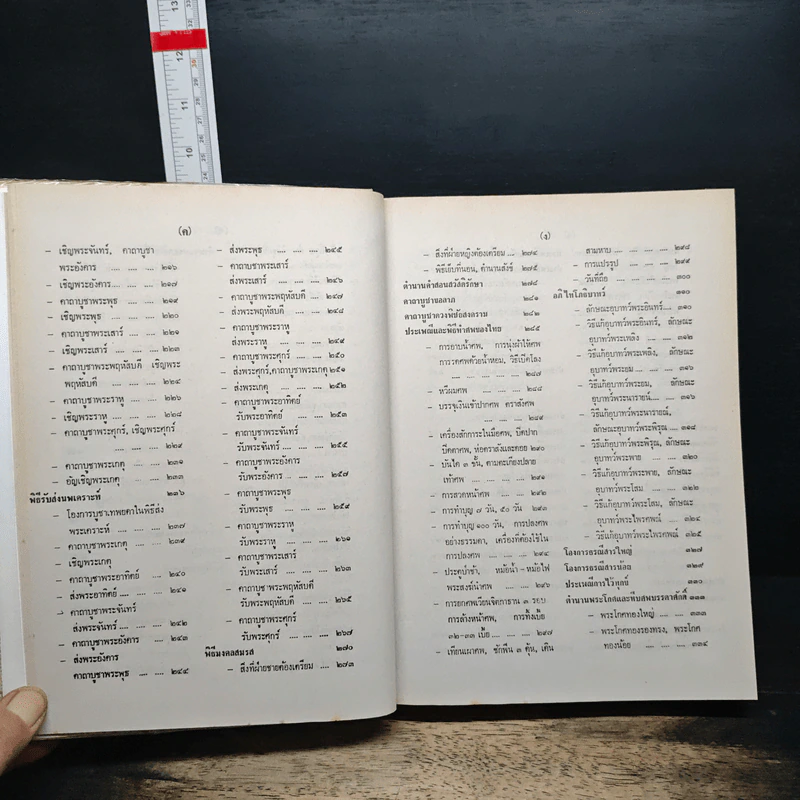 (ค)
- เชิญพระจันทร์, คาถาบูชา
พระอังคาร .... .... .... ๒๑๖
- เชิญพระอังคาร .... .... ๒๑๗
- คาถาบูชาพระพุธ .... .... ๒๑๙
- เชิญพระพุธ .... .... .... ๒๒๐
- คาถาบูชาพระเสาร์ .... .... ๒๒๑
- เชิญพระเสาร์ .... .... ๒๒๓
- คาถาบูชาพระพฤหัสบดี เชิญพระ
พฤหัสบดี .... .... .... ๒๒๔
- คาถาบูชาพระราหู .... .... ๒๒๖
- เชิญพระราหู .... .... .... ๒๒๘
- คาถาบูชาพระศุกร์, เชิญพระศุกร์
.... .... .... ๒๒๙
- คาถาบูชาพระเกตุ .... .... ๒๓๑
- อัญเชิญพระเกตุ .... .... ๒๓๓
พิธีรับส่งนพเคราะห์ ๒๓๖
- โองการบูชาเทพยดาในพิธีส่ง
พระเคราะห์ .... .... .... ๒๓๗
- คาถาบูชาพระเกตุ .... .... ๒๓๙
- เชิญพระเกตุ
- คาถาบูชาพระอาทิตย์ .... ๒๔๐
- ส่งพระอาทิตย์ .... .... ๒๔๑
- คาถาบูชาพระจันทร์
ส่งพระจันทร์ .... .... .... ๒๔๒
- คาถาบูชาพระอังคาร .... ๒๔๓
- ส่งพระอังคาร
คาถาบูชาพระพุธ .... .... ๒๔๔
- ส่งพระพุธ .... .... .... ๒๔๕
- คาถาบูชาพระเสาร์
ส่งพระเสาร์ .... .... .... ๒๔๖
- คาถาบูชาพระพฤหัสบดี .... ๒๔๗
- ส่งพระพฤหัสบดี .... .... ๒๔๘
- คาถาบูชาพระราหู
ส่งพระราหู .... .... .... ๒๔๙
- คาถาบูชาพระศุกร์ .... .... ๒๕๐
- ส่งพระศุกร์,คาถาบูชาพระเกตุ ๒๕๑
- ส่งพระเกตุ .... .... .... ๒๕๒
- คาถาบูชาพระอาทิตย์
รับพระอาทิตย์ .... .... ๒๕๓
- คาถาบูชาพระจันทร์
รับพระจันทร์ .... .... .... ๒๕๕
- คาถาบูชาพระอังคาร
รับพระอังคาร .... .... ๒๕๗
- คาถาบูชาพระพุธ
รับพระพุธ .... .... .... ๒๕๙
- คาถาบูชาพระราหู
รับพระราหู .... .... .... ๒๖๑
- คาถาบูชาพระเสาร์
รับพระเสาร์ .... .... .... ๒๖๓
- คาถาบูชาพระพฤหัสบดี
รับพระพฤหัสบดี .... .... ๒๖๕
- คาถาบูชาพระศุกร์
รับพระศุกร์ .... .... .... ๒๖๗
พิธีมงคลสมรส ๒๗๐
- สิ่งที่ฝ่ายชายต้องเตรียม .... ๒๗๓
(ง)
- สิ่งที่ฝ่ายหญิงต้องเตรียม .... ๒๗๔
- พิธีเย็บที่นอน, ตำนานสังข์ ๒๗๕
ตำนานคำสอนสวัสดิรักษา ๒๗๘
คาถาบูชาขอลาภ ๒๘๑
คาถาบูชาดวงพิชัยสงคราม ๒๘๒
ประเพณีและพิธีทำศพของไทย ๒๘๕
- การอาบน้ำศพ, การนุ่งผ้าให้ศพ
การรดศพด้วยน้ำหอม, วิธีเบิกโลง
.... .... .... .... ๒๘๗
- หวีผมศพ .... .... .... ๒๘๘
- บรรจุเงินเข้าปากศพ ตราสังศพ
.... .... .... ๒๘๙
- เครื่องสักการะในมือศพ, ปิดปาก
ปิดตาศพ, ห่อตราสังและดอย ๒๙๐
- บันได ๓ ขั้น, ตามตะเกียงปลาย
เท้าศพ .... .... .... ๒๙๑
- การสวดหน้าศพ .... .... ๒๙๒
- การทำบุญ ๗ วัน, ๕๐ วัน ๒๙๓
- การทำบุญ ๑๐๐ วัน, การปลงศพ
อย่างธรรมดา, เครื่องที่ต้องใช้ใน
การปลงศพ .... .... .... ๒๙๔
- ประตูป่าช้า, หม้อน้ำ - หม้อไฟ
พระสงฆ์นำศพ .... .... ๒๙๖
- การยกศพเวียนจิตกาธาน ๓ รอบ
การล้างหน้าศพ, การทิ้งเบี้ย
๓๒-๓๓ เบี้ย .... .... ๒๙๗
- เทียนเผาศพ, ชักฟืน ๓ ดุ้น, เดิน
สามหาบ .... .... .... ๒๙๘
- การแปรรูป .... .... .... ๒๙๙
- วันที่ถือ .... .... .... ๓๐๐
อภิไทโภธิบาทว์ ๓๑๐
- ลักษณะอุบาทว์พระอินทร์.... ๓๑๐
- วิธีแก้อุบาทว์พระอินทร์, ลักษณะ
อุบาทว์พระเพลิง .... .... ๓๑๒
- วิธีแก้อุบาทว์พระเพลิง, ลักษณะ
อุบาทว์พระยม .... .... ๓๑๔
- วิธีแก้อุบาทว์พระยม, ลักษณะ
อุบาทว์พระนารายณ์.... .... ๓๑๖
- วิธีแก้อุบาทว์พระนารายณ์,
ลักษณะอุบาทว์พระพิรุณ .... ๓๑๘
- วิธีแก้อุบาทว์พระพิรุณ, ลักษณะ
อุบาทว์พระพาย .... ....
- วิธีแก้อุบาทว์พระพาย, ลักษณะ
อุบาทว์พระโสม .... ....
- วิธีแก้อุบาทว์พระโสม, ลักษณะ
อุบาทว์พระไพรศพณ์ .... ๓๒๔
- วิธีแก้อุบาทว์พระไพรศพณ์ ๓๒๕
โองการธรณีสารใหญ่ ๓๒๗
โองการธรณีสารน้อย ๓๒๙
ประเพณีการไว้ทุกข์ ๓๓๐
ตำนานพระโกศและหีบศพบรรดาศักดิ์ ๓๓๑
- พระโกศทองใหญ่ .... .... ๓๓๓
- พระโกศทองรองทรง, พระโกศ
ทองน้อย .... .... .... ๓๓๔
13
12
11
10